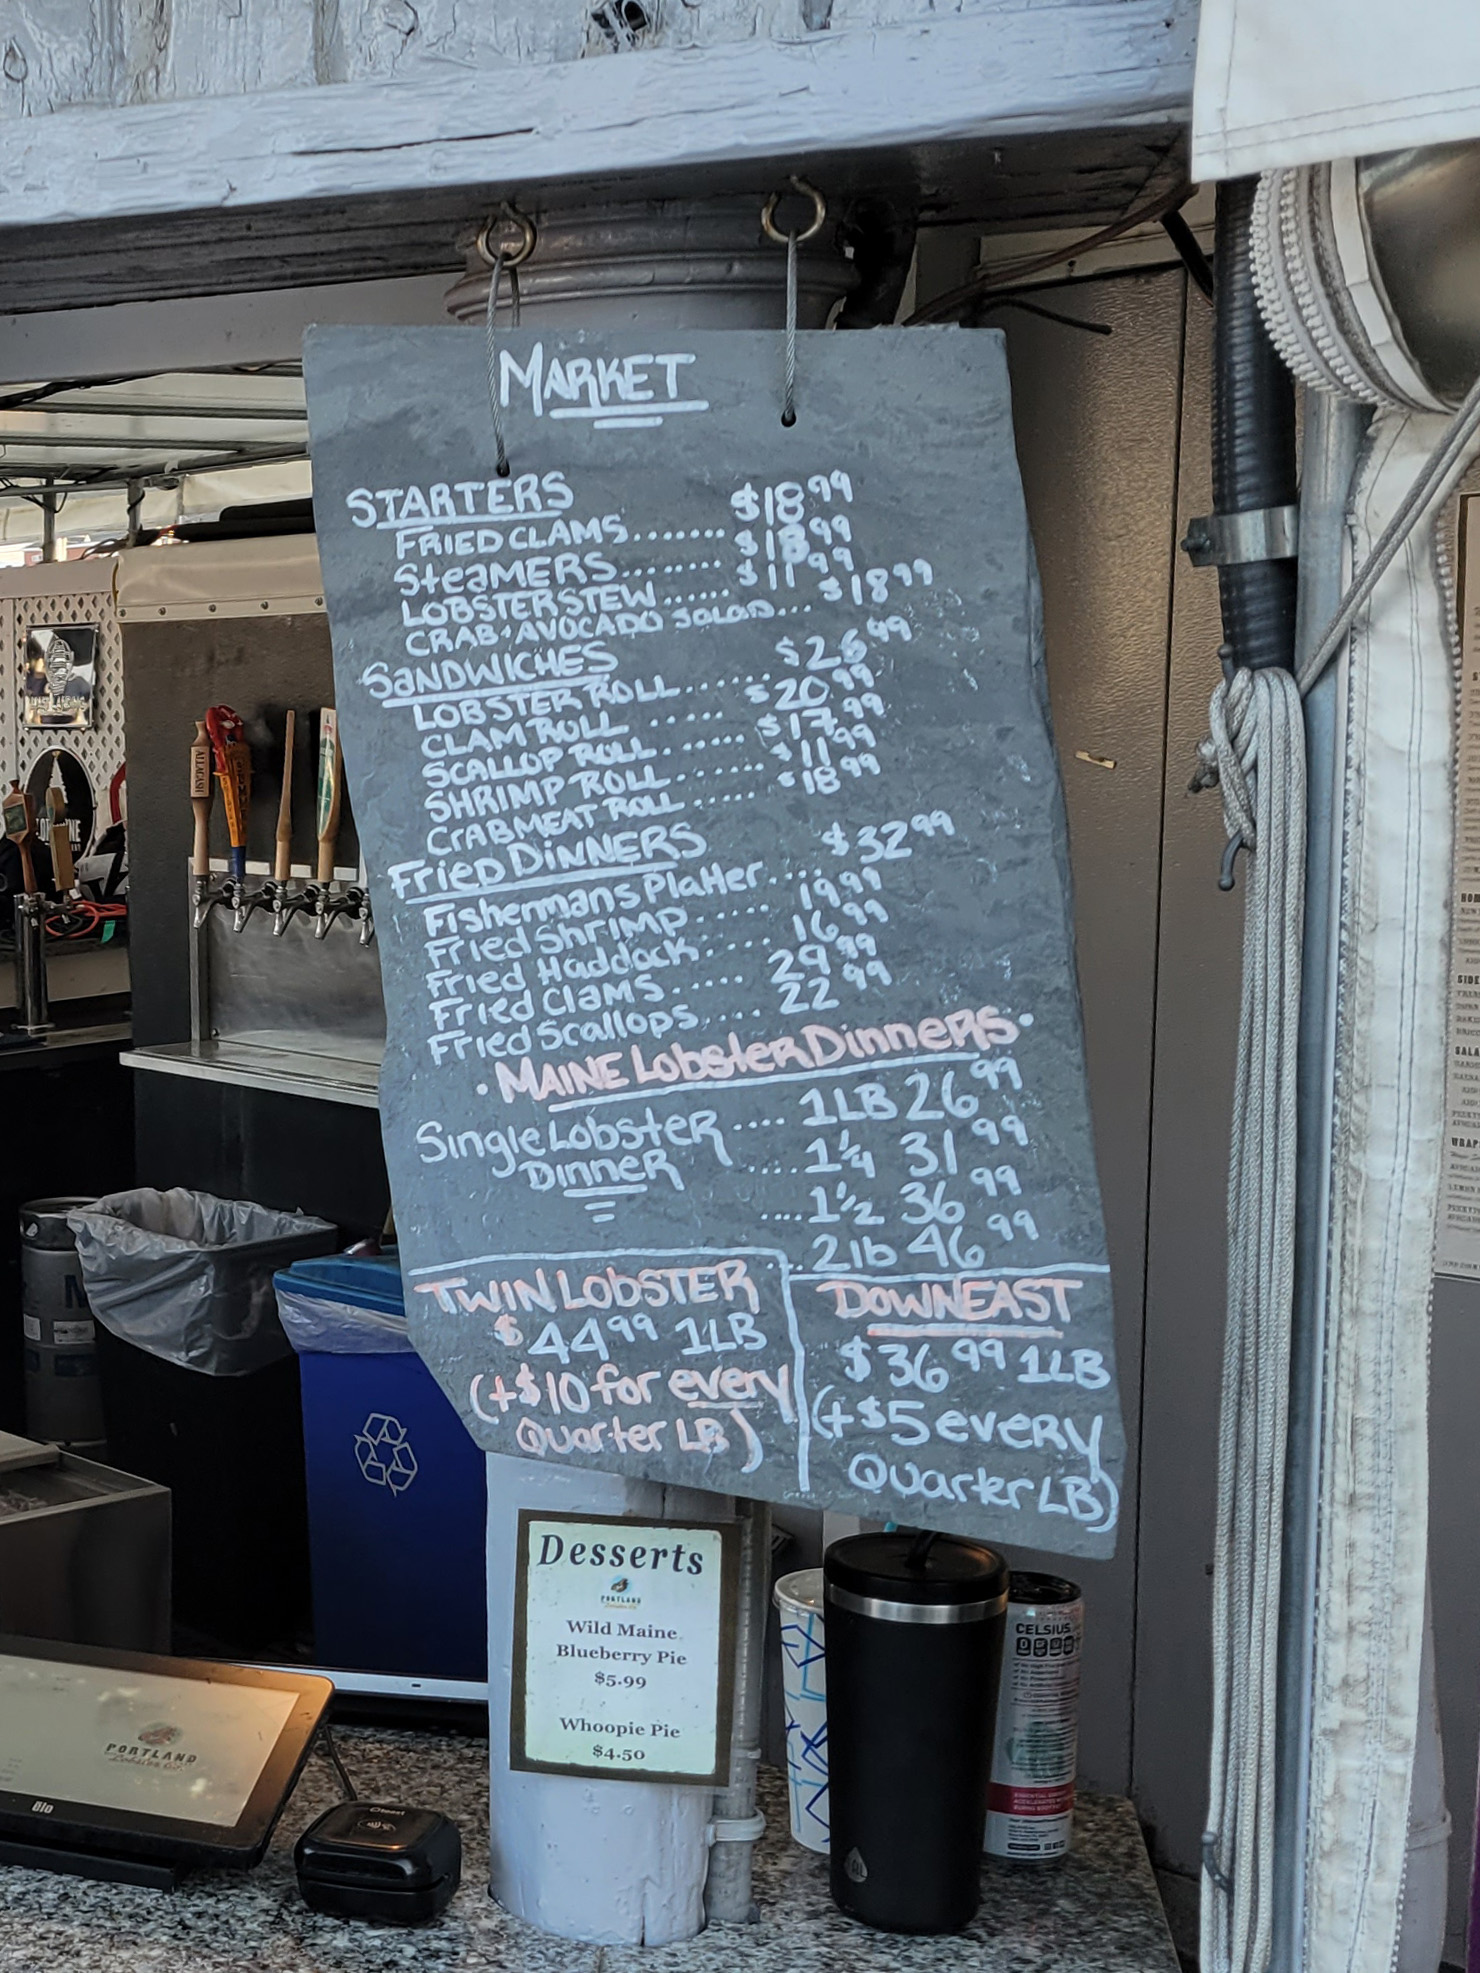 MARKET
STARTERS
FRIED CLAMS....... $18.99
SteaMERS........ $18.99
LOBSTER STEW...... $11.99
CRAB+AVOCADO SaLaD... $18.99
SaNDWICHES
LOBSTER ROLL...... $26.99
CLAM ROLL ..... $20.99
SCALLOP ROLL...... $17.99
SHRIMP ROLL...... $11.99
CrABMEAT ROLL..... $18.99
Fried DiNNERS
Fishermans Platter.... $32.99
Fried Shrimp..... 19.99
Fried Haddock..... 16.99
Fried Clams..... 29.99
Fried Scallops.... 22.99
• MAINE LobsterDinners •
Single Lobster .... 1LB 26.99
Dinner .... 1 1/4 31.99
.... 1 1/2 36.99
.. 2lb 46.99
TWIN LObSTER
$44.99 1LB
(+$10 for every
Quarter LB)
DOWNEAST
$36.99 1LB
(+$5 every
Quarter LB)
Desserts
PORTLAND
Wild Maine
Blueberry Pie
$5.99
Whoopie Pie
$4.50
PORTLAND
Lobster Co
elo
CELSIUS
ALLAGASH